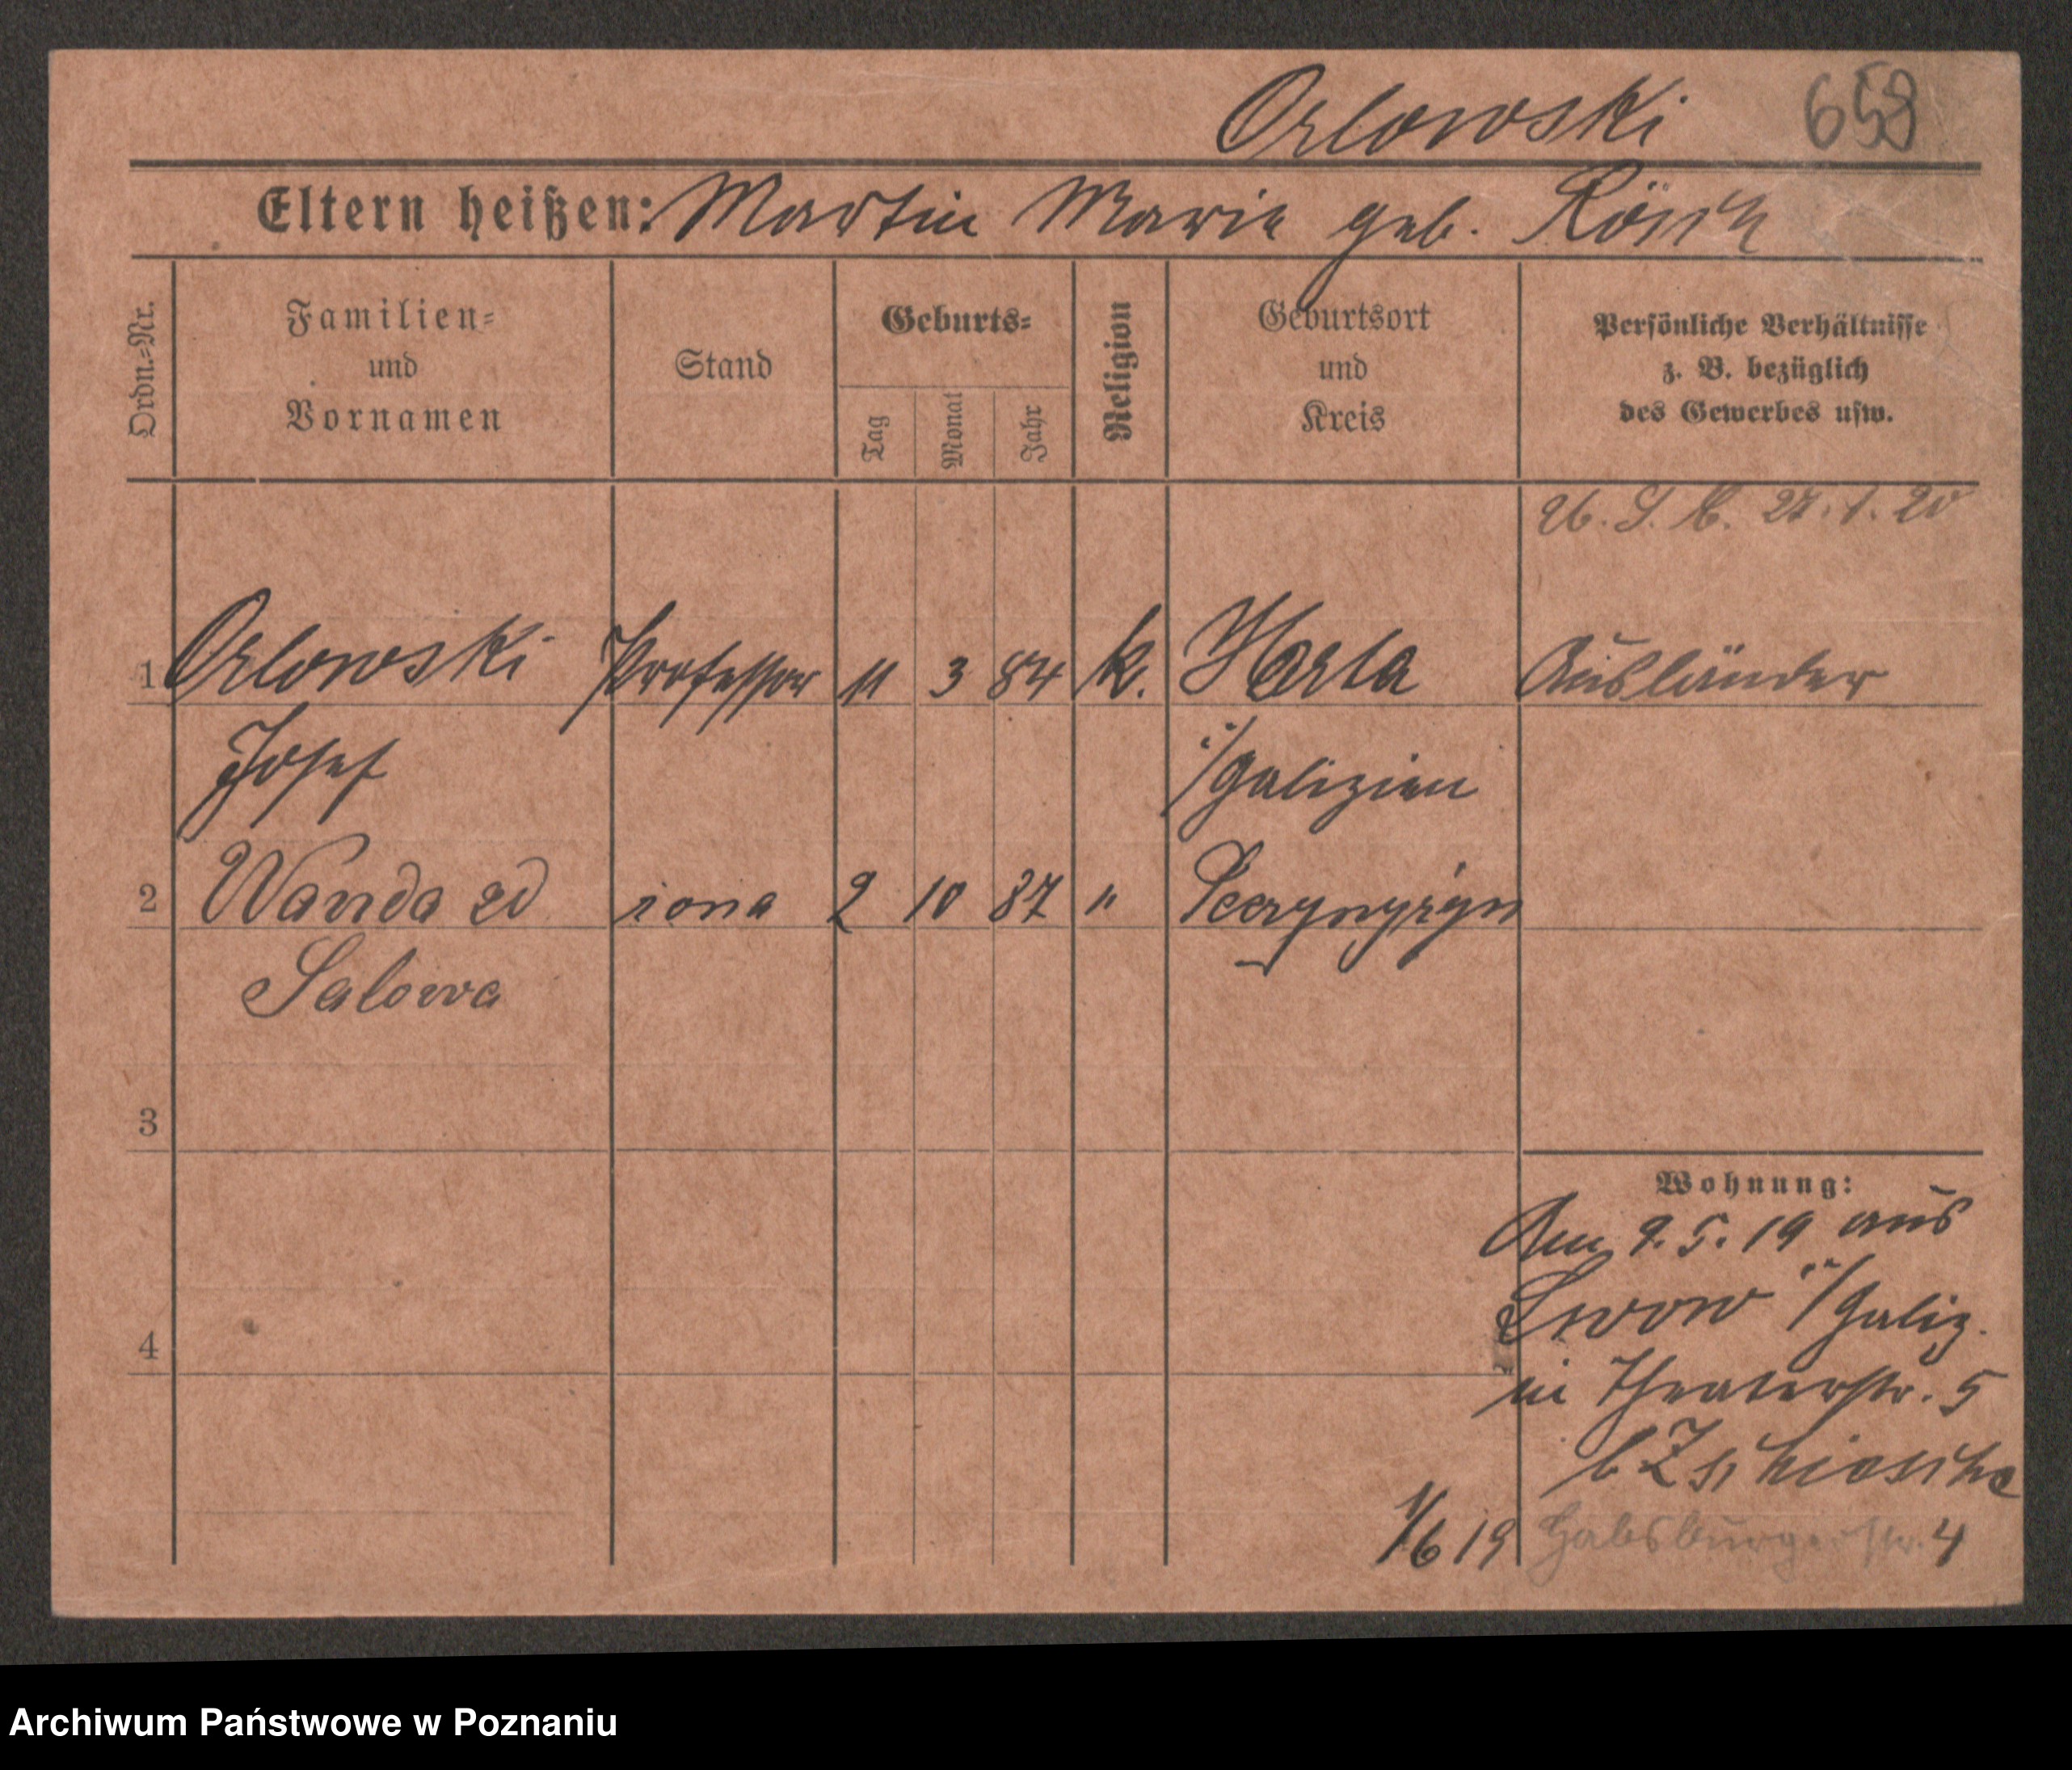 Orlowski 658
Eltern heißen: Martin Marie geb. Rösch
Ordn.=Nr.
Familien=
und
Vornamen
Stand
Geburts=
Tag
Monat
Jahr
Religion
Geburtsort
und
Kreis
Persönliche Verhältnisse
z. B. bezüglich
des Gewerbes usw.
27.1.20
1 Orlowski Professor 11 3 84 k. Harta Ausländer
Josef i/Galizien
2 Wanda zd żona 2 10 87 "
Salowa
3
4
Wohnung:
Am 9.5.19 aus
Lwow i/Galiz.
in Theaterstr. 5
b
1/6 19 Habsburgerstr. 4
Archiwum Państwowe w Poznaniu